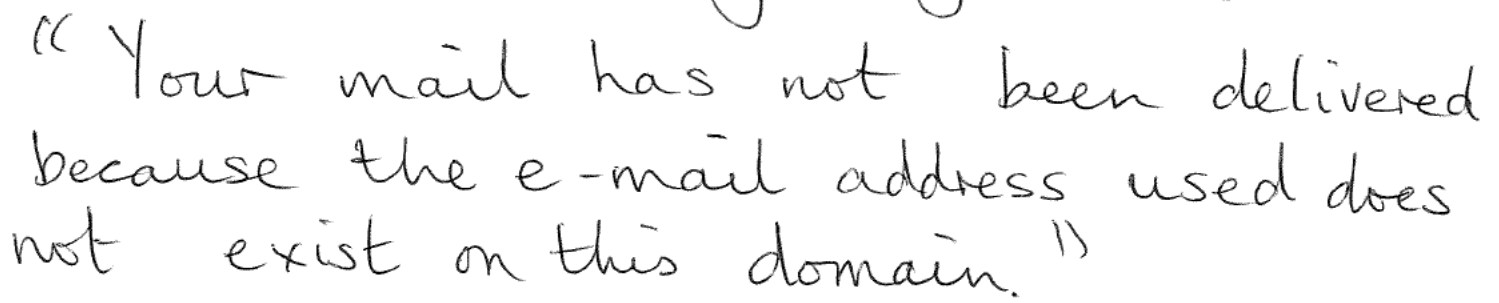 "Your mail has not been delivered
because the e-mail address used does
not exist on this domain."